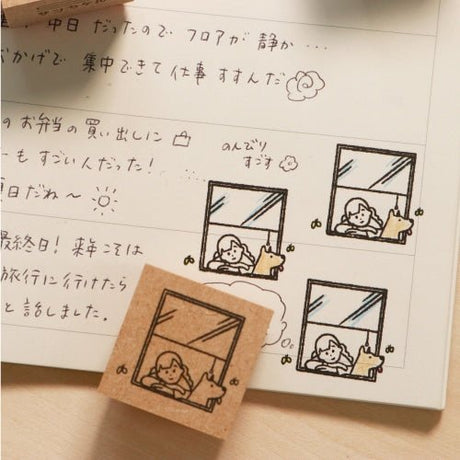 中日 だったので フロアが 静か ...
おかげで 集中できて 仕事 すすんだ
の お弁当の 買い出しに
ーも すごいんだった!
のんびり
すごす
日だね〜
最終日! 来年こそは
旅行に 行けたら
と 話しました。